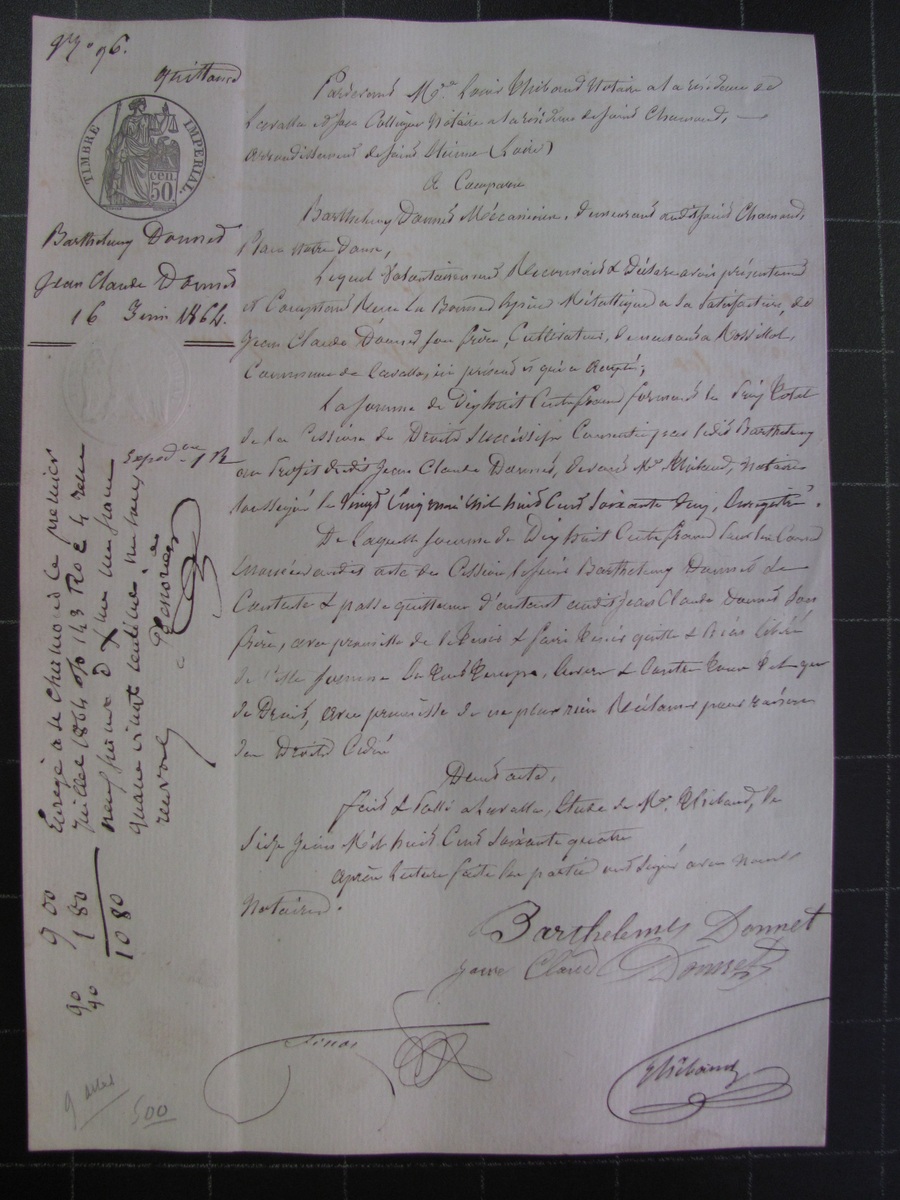 N° 96.
quittance
TIMBRE IMPÉRIAL.
cen. 50.
Barthelemy Donnet
Jean Claude Donnet
16 Juin 1864.
Pardevant Me Louis Thibaud Notaire a la résidence de
Lavalla et Jean Notaire a la résidence de Saint Chamond,
arrondissement de Saint Etienne (Loire)
a Comparu
Barthelemy Donnet Mécanicien, demeurant audit Saint Chamond,
Place Notre Dame,
Lequel Volontairement Reconnait & Déclare avoir présentement
et Comptant Recu En Bonnes Espèces Métalliques a sa satisfaction, de
Jean Claude Donnet son frère Cultivateur, demeurant a Rossillol,
Commune de Lavalla, ici présent & qui a accepté,
La somme de Dix huit Cents francs formant le prix total
de la Cession de Droits Successifs Consentie par ledit Barthelemy
au Profit dudit Jean Claude Donnet, devant Me Thibaud, Notaire
soussigné le vingt cinq mai mil huit cent soixante deux, Enregistré.
De laquelle somme de Dix huit Cents francs
acte de Cession ledit Barthelemy Donnet se
Contente & passe quittance d'autant audit Jean Claude Donnet son
frère, avec promesse de le tenir & faire tenir quitte & bien libéré
de cette somme Envers & Contre Tous
de Droit, avec promesse de ne plus rien Réclamer pour raison
des Droits Cédés
Dont acte,
fait & Passé a Lavalla, Etude de Me Thibaud, le
Seize Juin Mil huit Cent Soixante quatre
après Lecture faite les parties ont Signé avec Nous
Notaires.
Barthelemy Donnet
Jean Claude Donnet
Finas
Thibaud
Enregé a St Chamond le premier
Juillet 1864 f° 143 R° C 4 reçu
neuf francs Dixme un franc
quatre vingt centimes
Expéd.
9 00
1 80
10 80
90
40
9 actes
500